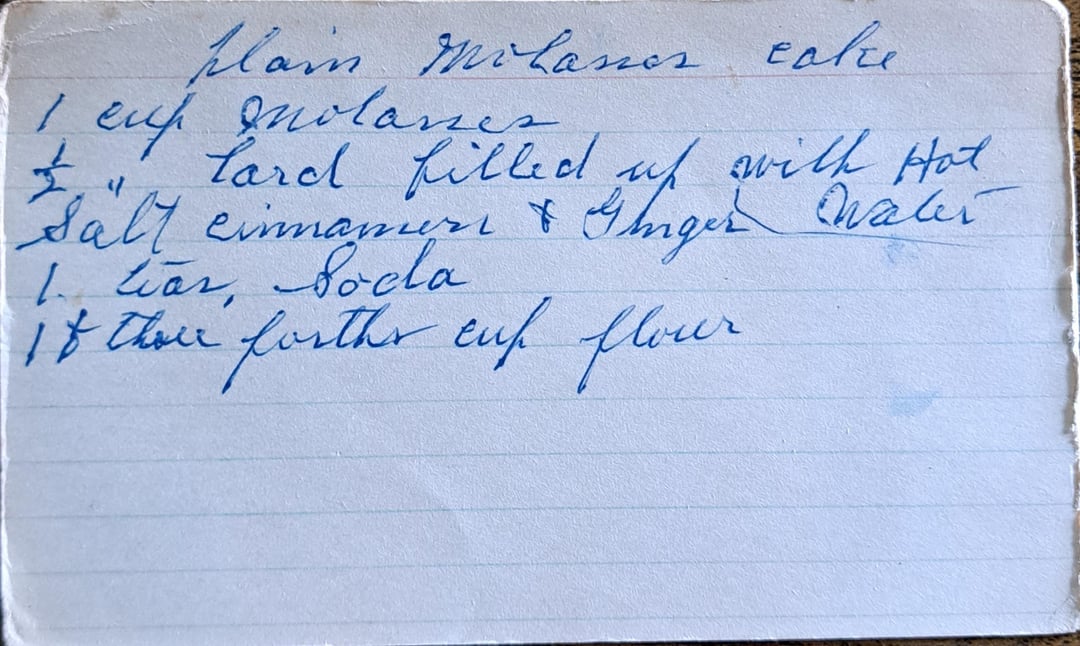 Plain Molasses cake
1 cup Molasses
1/2 " Lard filled up with Hot
Salt cinnamen & Ginger Water
1. teas, Soda
1 & three forths cup flour